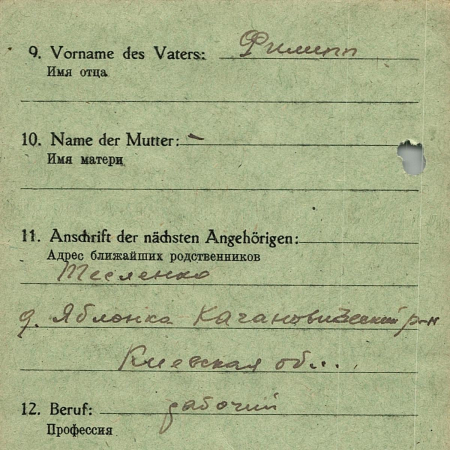 9. Vorname des Vaters: Филипп
Имя отца
10. Name der Mutter: –
Имя матери
11. Anschrift der nächsten Angehörigen:
Адрес ближайших родственников
Тесленко
д. Яблонка Качановический р-н
Киевская обл.
12. Beruf: рабочий
Профессия